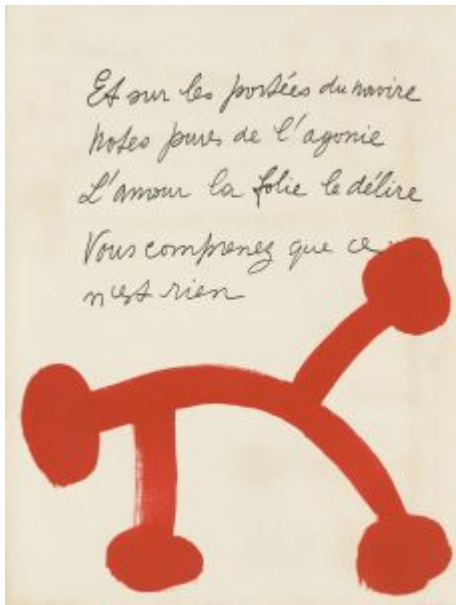 Et sur les portées du navire
Notes pures de l'agonie
L'amour la folie le délire
Vous comprenez que ce
n'est rien